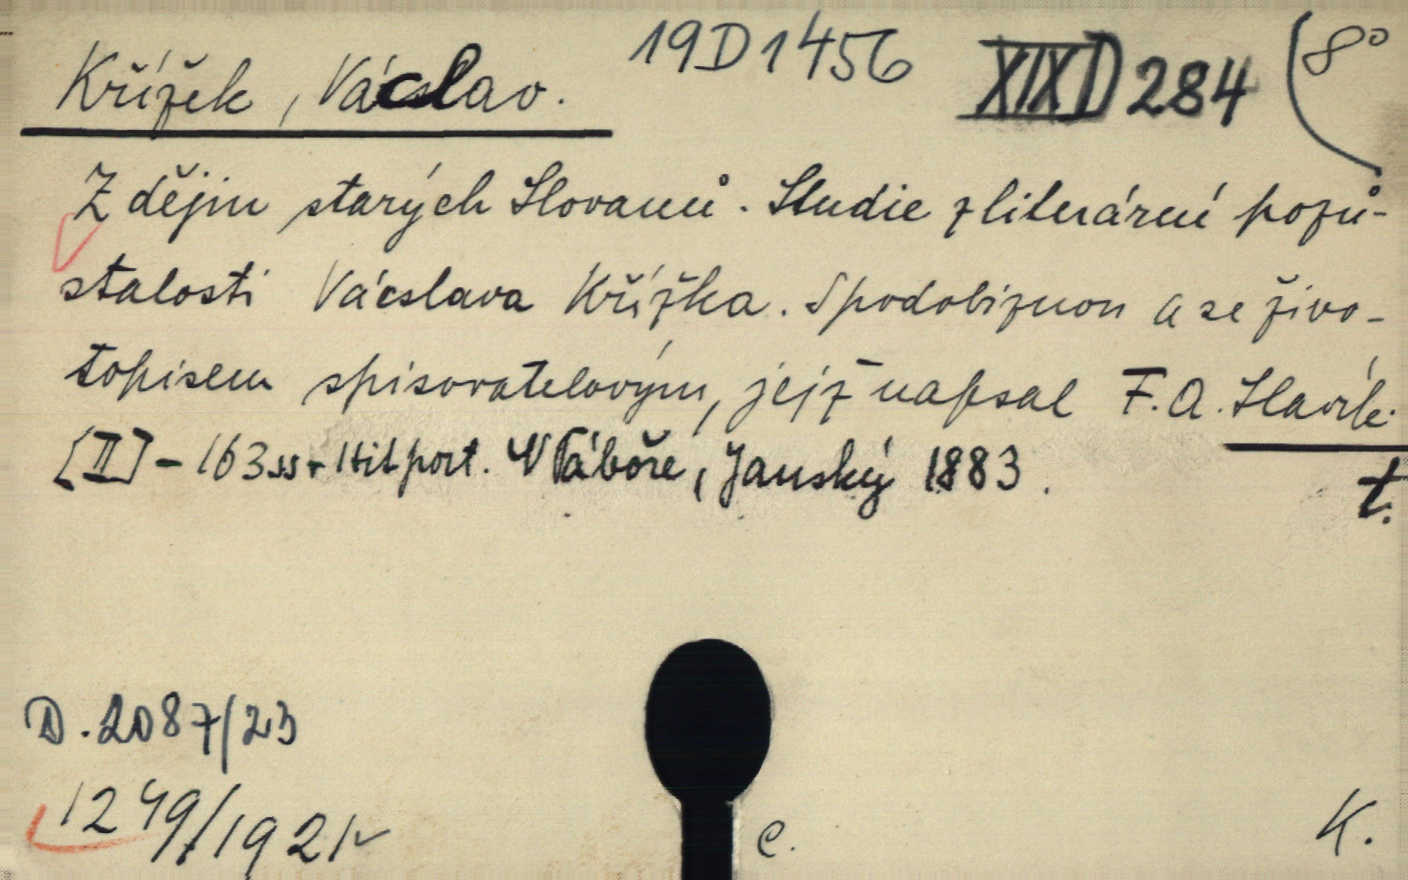 19D1456 XIXD 284 8°
Křížek, Václav.
Z dějin starých Slovanů. Studie z literární pozů-
stalosti Vácslava Křížka. S podobiznou a se živo-
topisem spisovatelovým, jejž napsal F. A. Slavík.
[II] - 163 ss + 1 tit port. V Táboře, Janský 1883.
t.
D. 2087/23
1249/1921
c.
K.